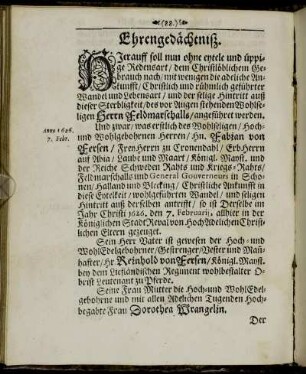 (22.)
Ehrengedächtniß.
HJerauff soll nun ohne eytele und üppi-
ge Redensart/ dem Christlöblichem Ge-
brauch nach/ mit wenigen die adeliche An-
kunfft/ Christlich und rühmlich geführter
Wandel und Lebensart/ und der selige Hintritt auß
dieser Sterbligkeit/ des vor Augen stehenden Wohlse-
ligen Herrn Feldmarschalls/ angeführet werden.
Und zwar/ was erstlich des Wohlseligen/ Hoch-
und Wohlgebohrnen Herrn/ Hn. Fabian von
Anno 1626.
7. Febr.
Fersen/ FreyHerrn zu Cronendahl/ ErbHerrn
auf Abia/ Laube und Maart/ Königl. Mayst. und
der Reiche Schweden Rahts und Kriegs-Rahts/
Feldmarschalls und General Gouverneurs in Scho-
nen/ Halland und Blecking/ Christliche Ankunft in
diese Eytelkeit/ wohlgeführten Wandel/ und seligen
Hintritt auß derselben antrifft/ so ist Derselbe im
Jahr Christi 1626. den 7. Februarij, allhier in der
Königlichen Stadt Reval von HochAdelichen Christ-
lichen Eltern gezeuget.
Sein Herr Vater ist gewesen der Hoch- und
WohlEdelgebohrner/ Gestrenger/ Vester und Mañ-
hafter/ Hr Reinhold von Fersen/ Königl. Mayst.
bey dem Liefländischen Regiment wohlbestalter O-
brist Leutenant zu Pferde.
Seine Frau Mutter die Hoch-und Wohl Edel-
gebohrne und mit allen Adelichen Tugenden Hoch-
begabte Frau Dorothea Wrangelin.
Der